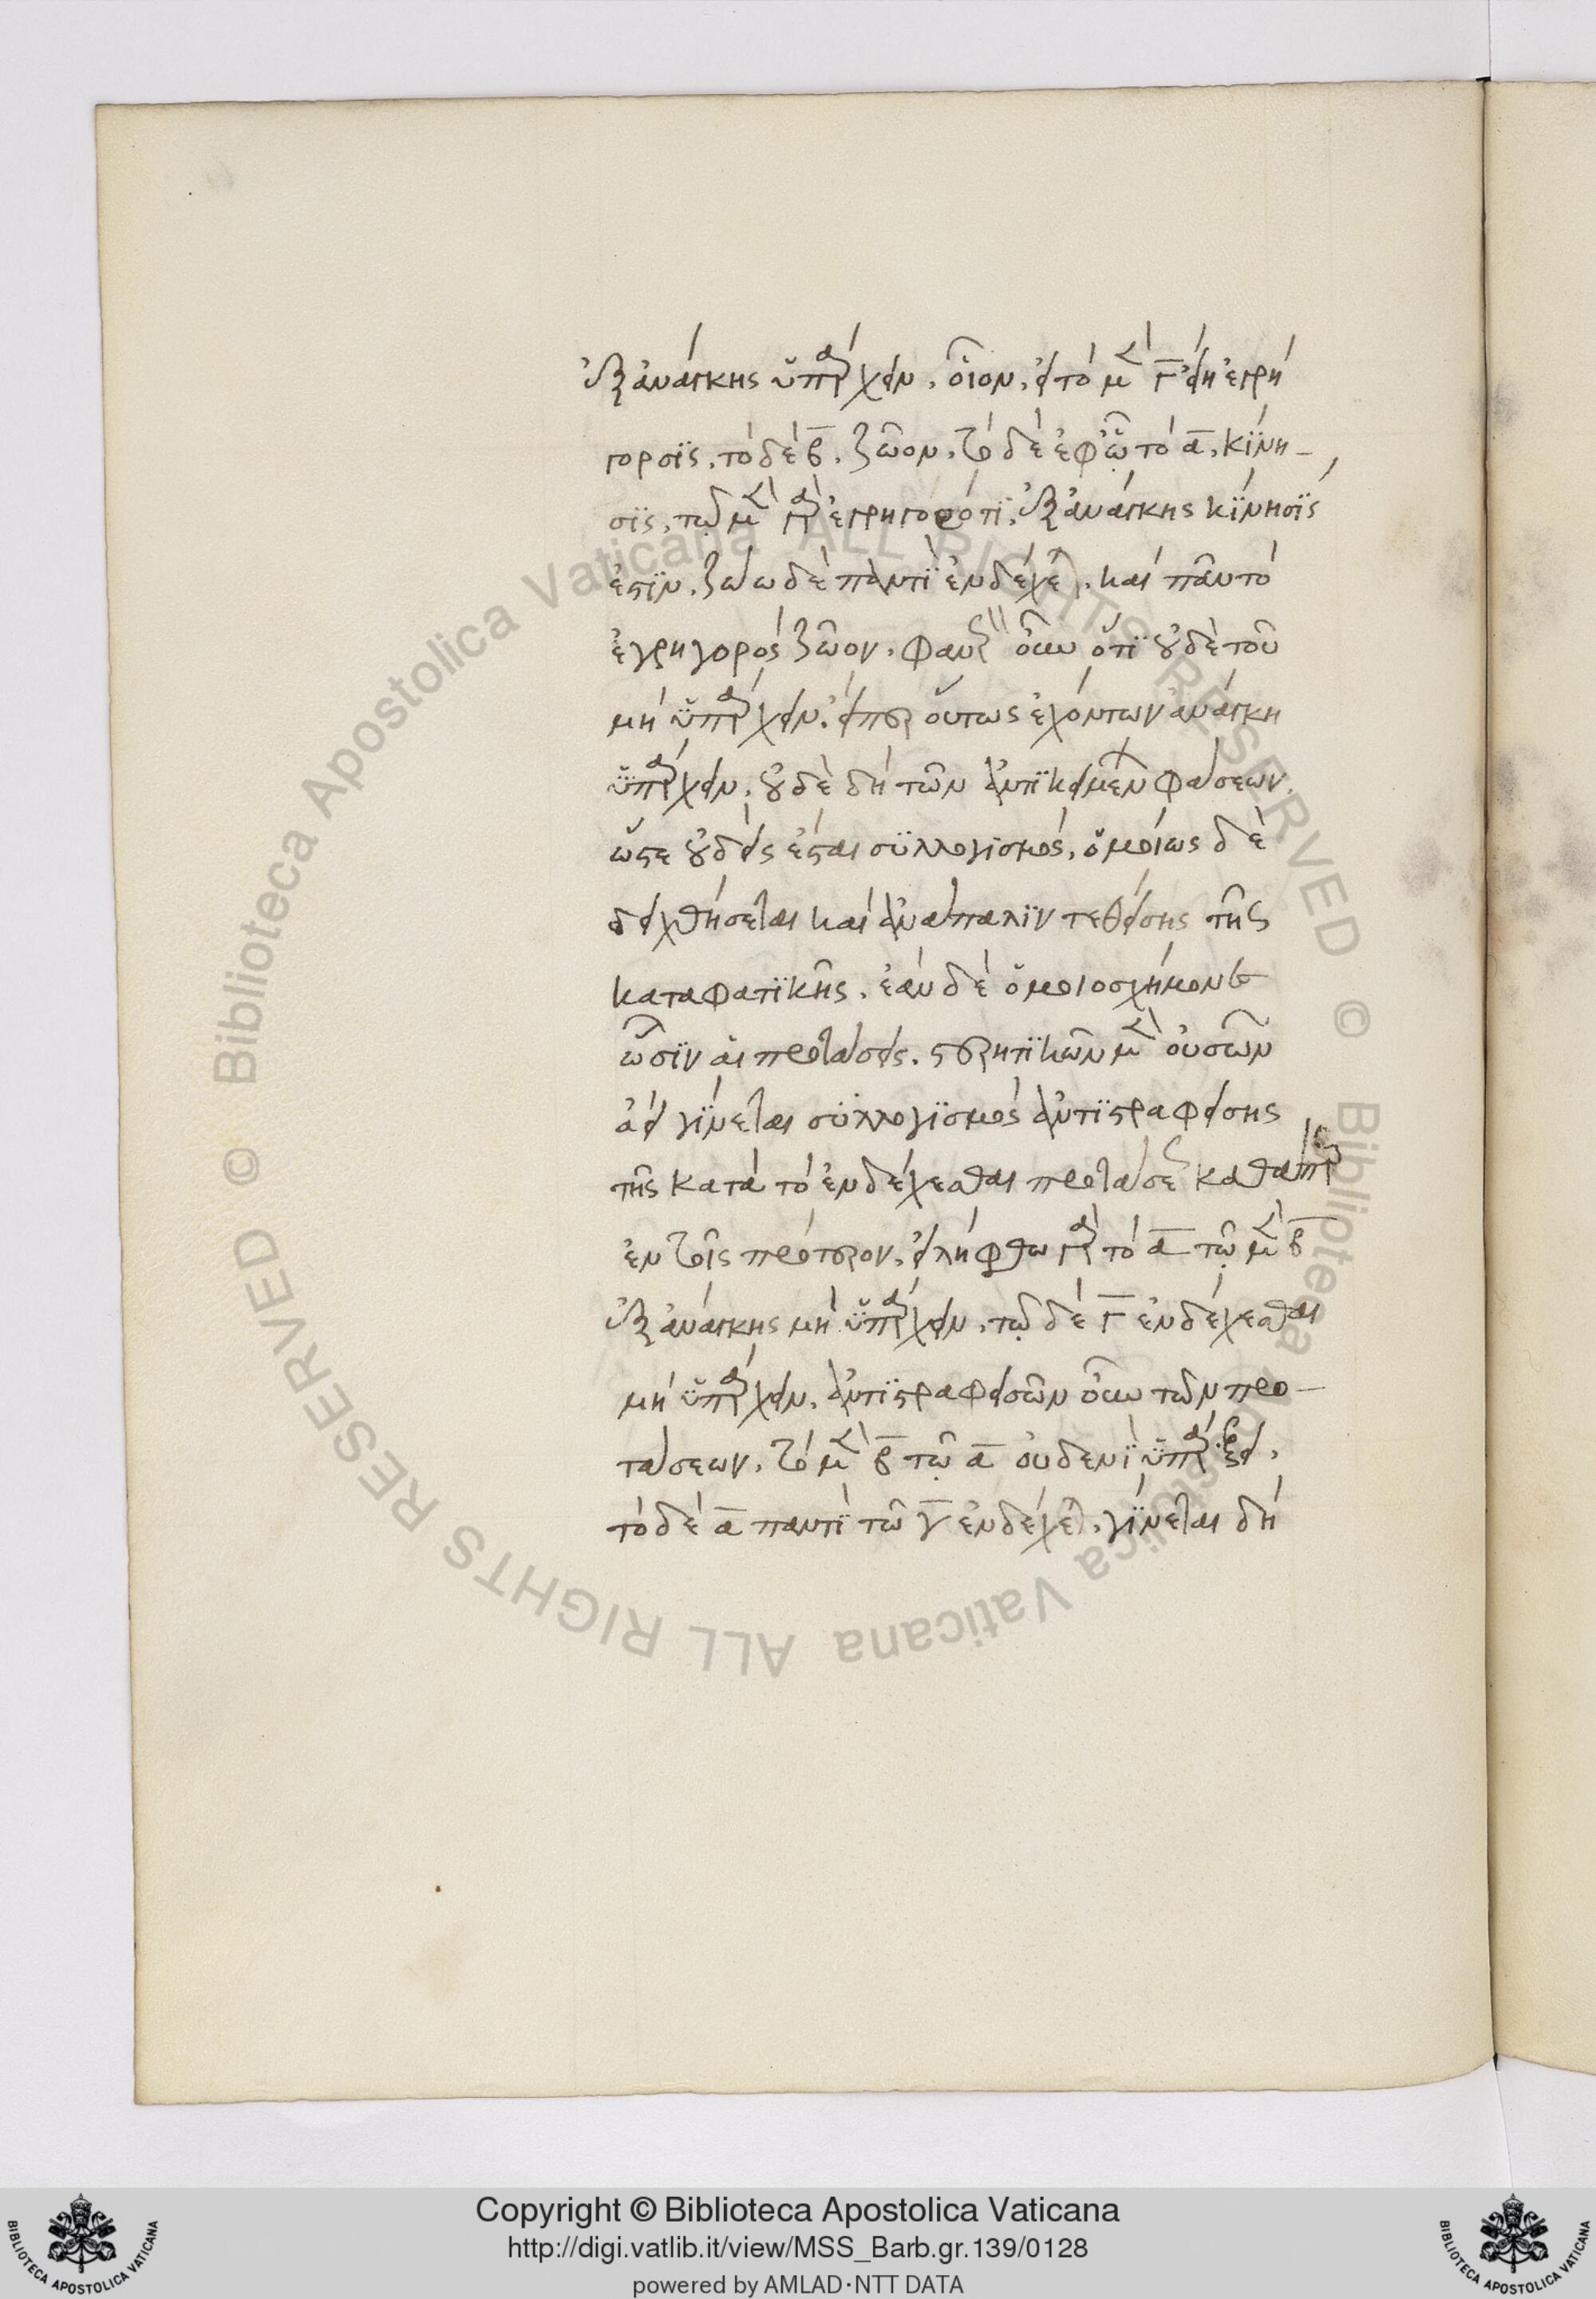 ἐξ ἀνάγκης ὑπάρχειν. οἷον, εἰ τὸ μὲν Γ εἴη ἐγρή
γορσις, τὸ δὲ β, ζῶον, τὸ δὲ ἐφ' ᾧ τὸ α, κίνη-
σις, τῷ μὲν γὰρ ἐγρηγορότι, ἐξ ἀνάγκης κίνησις
ἐστιν, ζώω δὲ παντὶ ἐνδέχεται. καὶ πᾶν τὸ
ἐγρηγορὸς ζῶον. φανερὸν οὖν ὅτι οὐδὲ τοῦ
μὴ ὑπάρχειν, εἴπερ οὕτως ἐχόντων ἀνάγκη
ὑπάρχειν. οὐδὲ δὴ τῶν ἀντικειμένων φάσεων.
ὥστε οὐδεὶς ἔσται συλλογισμός. ὁμοίως δὲ
δειχθήσεται καὶ ἀνάπαλιν τεθείσης τῆς
καταφατικῆς. ἐὰν δὲ ὁμοιοσχήμονες
ὦσιν αἱ προτάσεις. στερητικῶν μὲν οὐσῶν
ἀεὶ γίνεται συλλογισμὸς ἀντιστραφείσης
τῆς κατὰ τὸ ἐνδέχεσθαι προτάσεως καθάπερ
ἐν τοῖς πρότερον. εἰλήφθω γὰρ τὸ α τῷ μὲν β
ἐξ ἀνάγκης μὴ ὑπάρχειν, τῷ δὲ Γ ἐνδέχεσθαι
μὴ ὑπάρχειν. ἀντιστραφεισῶν οὖν τῶν προ-
τάσεων. τὸ μὲν β τῷ α οὐδενὶ ὑπάρξει.
τὸ δὲ α παντὶ τῷ γ ἐνδέχεται. γίνεται δὴ
Copyright © Biblioteca Apostolica Vaticana
http://digi.vatlib.it/view/MSS_Barb.gr.139/0128
powered by AMLAD·NTT DATA